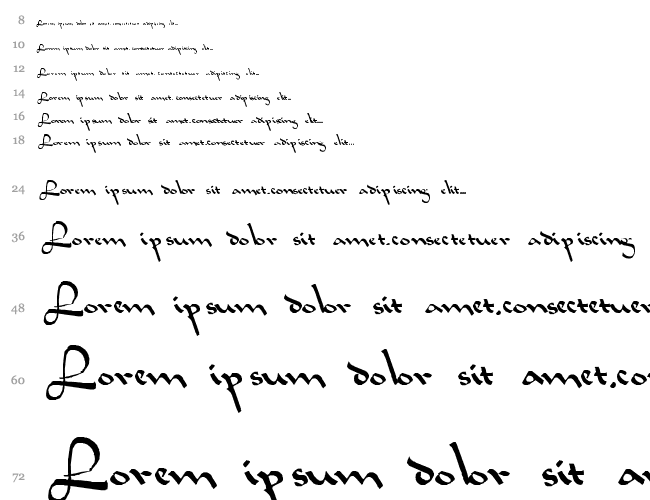 8 Lorem ipsum dolor sit amet.consectetuer adipiscing elit...
10 Lorem ipsum dolor sit amet.consectetuer adipiscing elit...
12 Lorem ipsum dolor sit amet.consectetuer adipiscing elit...
14 Lorem ipsum dolor sit amet.consectetuer adipiscing elit...
16 Lorem ipsum dolor sit amet.consectetuer adipiscing elit...
18 Lorem ipsum dolor sit amet.consectetuer adipiscing elit...
24 Lorem ipsum dolor sit amet.consectetuer adipiscing elit...
36 Lorem ipsum dolor sit amet.consectetuer adipiscing
48 Lorem ipsum dolor sit amet.consectetuer
60 Lorem ipsum dolor sit amet.co
72 Lorem ipsum dolor sit a